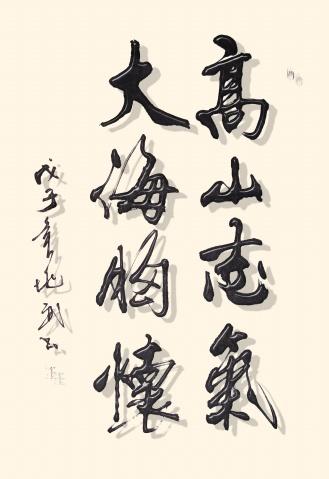 高山志氣
大海胸懷
戊子年